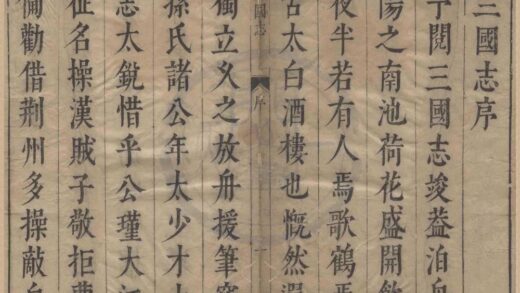 三國志序
予閱三國志竣葢泊
陽之南池荷花盛開飲
夜半若有人焉歌鶴焉
古太白酒樓也慨然
國志 序 一
獨立乆之放舟援筆
孫氏諸公年太少才
志太銳惜乎公瑾大
名操漢賊子敬拒曹
備勸借荆州多操敵